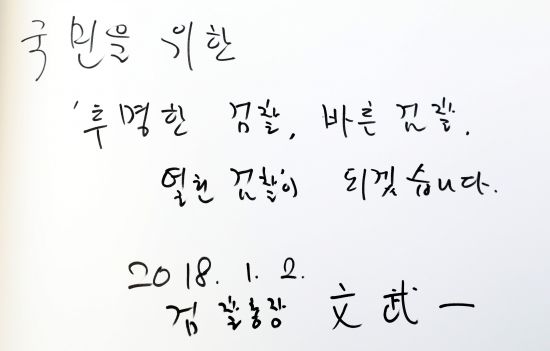 국민을 위한
'투명한 검찰, 바른 검찰,
열린 검찰'이 되겠습니다.
2018. 1. 2.
검찰총장 文武一